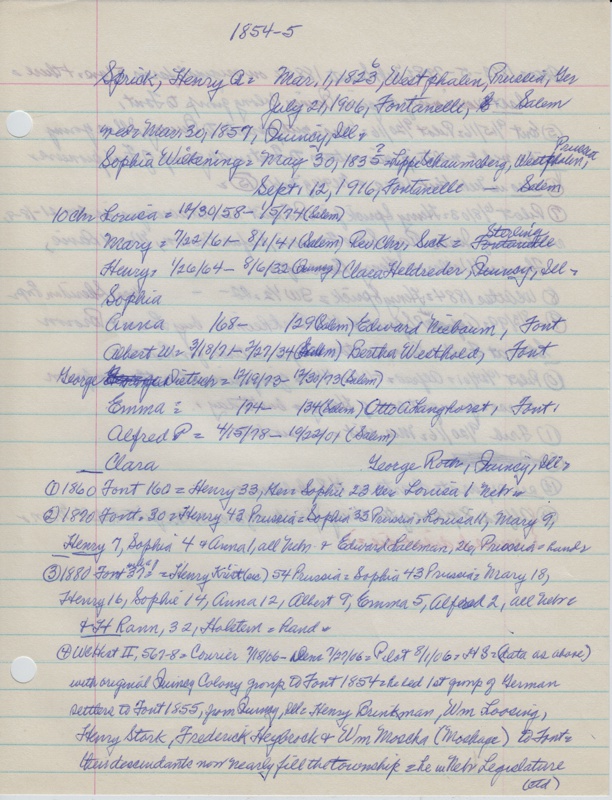 1854-5
Sprick, Henry A = Mar, 1, 1823 6, Westphalin, Prussia, Ger
July 21, 1906, Fontanelle, Salem
m = Mar, 30, 1857, Quincy, Ill =
Sophia Wilkening = May 30, 1835 ? = Lippe Schaumberg, Westphalin, Prussia
Sept, 12, 1916, Fontanelle — Salem
10 Chr Louisa = 12/30/58 - 1/5/74 (Salem)
Mary = 7/22/61 - 8/1/41 (Salem) Rev Chr, Sick = Fontanelle Sterling
Henry = 1/26/64 - 8/6/32 (Quincy) Clara Heldreder, Quincy, Ill =
Sophia
Anna 168 - 129 (Salem) Edward Niebaum, Font
Albert W = 3/18/71 - 2/27/34 (Salem) Bertha Westhold, Font
George Dietrich = 12/19/73 - 12/30/73 (Salem)
Emma = 174 - 134 (Salem) Otto A Langhorst, Font,
Alfred P = 4/15/78 - 10/22/01 (Salem)
Clara George Roth, Quincy, Ill =
① 1860 Font 160 = Henry 33, Ger = Sophie 23 Ger Louisa 1 Nebr =
② 1870 Font, 30 = Henry 43 Prussia = Sophia 33 Prussia = Louisa 11, Mary 9,
Henry 7, Sophia 4 & Anna 1, all Nebr & Edward Tallman, 26, Prussia = hands
③ 1880 Font 37 = Henry Krist (sic) 54 Prussia = Sophia 43 Prussia = Mary 18,
Henry 16, Sophie 14, Anna 12, Albert 9, Emma 5, Alfred 2, all Nebr
& H Rann, 32, Holstein = hand =
④ II, 567-8 = Courier 7/18/06 - Dem 7/27/06 = Pilot 8/1/06 = HS = (data as above)
with original Quincy Colony group to Font 1854 = he led 1st group of German
settlers to Font 1855, from Quincy, Ill = Henry Brinkman, Wm Loosing,
Henry Stork, Frederick Heybrock & Wm Moscka (Moshage) to Font =
their descendants now nearly fill the township = he in Nebr Legislature